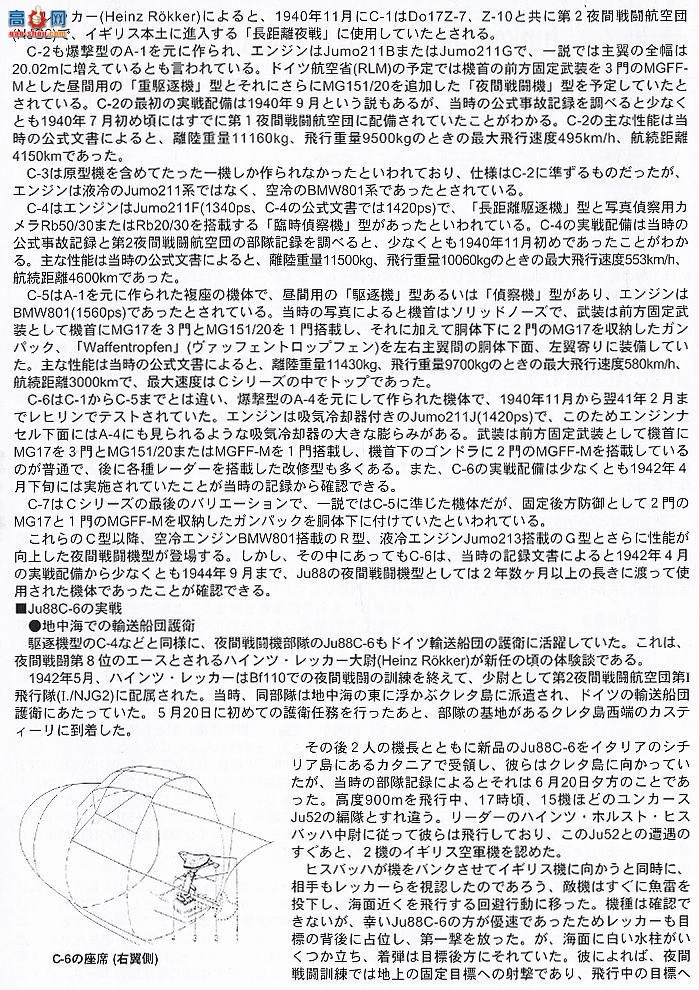 高网
カー(Heinz Rökker)によると、1940年11月にC-1はDo17Z-7、Z-10と共に第2夜間戦闘航空団
で、イギリス本土に進入する「長距離夜戦」に使用していたとされる。
C-2も爆撃型のA-1を元に作られ、エンジンはJumo211BまたはJumo211Gで、一説では主翼の全幅は
20.02mに増えているとも言われている。ドイツ航空省(RLM)の予定では機首の前方固定武装を3門のMGFF-
Mとした昼間用の「重駆逐機」型とそれにさらにMG151/20を追加した「夜間戦闘機」型を予定していたと
されている。C-2の最初の実戦配備は1940年9月という説もあるが、当時の公式事故記録を調べると少なく
とも1940年7月初め頃にはすでに第1夜間戦闘航空団に配備されていたことがわかる。C-2の主な性能は当
時の公式文書によると、離陸重量11160kg、飛行重量9500kgのときの最大飛行速度495km/h、航続距離
4150kmであった。
C-3は原型機を含めてたった一機しか作られなかったといわれており、仕様はC-2に準ずるものだったが、
エンジンは液冷のJumo211系ではなく、空冷のBMW801系であったとされている。
C-4はエンジンはJumo211F(1340ps、C-4の公式文書では1420ps)で、「長距離駆逐機」型と写真偵察用カ
メラRb50/30またはRb20/30を搭載する「臨時偵察機」型があったといわれている。C-4の実戦配備は当時の
公式事故記録と第2夜間戦闘航空団の部隊記録を調べると、少なくとも1940年11月初めであったことがわか
る。主な性能は当時の公式文書によると、離陸重量11500kg、飛行重量10060kgのときの最大飛行速度553km/h、
航続距離4600kmであった。
C-5はA-1を元に作られた複座の機体で、昼間用の「駆逐機」型あるいは「偵察機」型があり、エンジンは
BMW801(1560ps)であったとされている。当時の写真によると機首はソリッドノーズで、武装は前方固定武
装として機首にMG17を3門とMG151/20を1門搭載し、それに加えて胴体下に2門のMG17を収納したガン
パック、「Waffentropfen」(ヴァッフェントロップフェン)を左右主翼間の胴体下面、左翼寄りに装備してい
た。主な性能は当時の公式文書によると、離陸重量11430kg、飛行重量9700kgのときの最大飛行速度580km/h、
航続距離3000kmで、最大速度はCシリーズの中でトップであった。
C-6はC-1からC-5までとは違い、爆撃型のA-4を元にして作られた機体で、1940年11月から翌41年2月ま
でレヒリンでテストされていた。エンジンは吸気冷却器付きのJumo211J(1420ps)で、このためエンジンナ
セル下面にはA-4にも見られるような吸気冷却器の大きな膨らみがある。武装は前方固定武装として機首に
MG17を3門とMG151/20またはMGFF-Mを1門搭載し、機首下のゴンドラに2門のMGFF-Mを搭載している
のが普通で、後に各種レーダーを搭載した改修型も多くある。また、C-6の実戦配備は少なくとも1942年4
月下旬には実施されていたことが当時の記録から確認できる。
C-7はCシリーズの最後のバリエーションで、一説ではC-5に準じた機体だが、固定後方防御として2門の
MG17と1門のMGFF-Mを収納したガンパックを胴体下に付けていたといわれている。
これらのC型以降、空冷エンジンBMW801搭載のR型、液冷エンジンJumo213搭載のG型とさらに性能が
向上した夜間戦闘機型が登場する。しかし、その中にあってもC-6は、当時の記録文書によると1942年4月
の実戦配備から少なくとも1944年9月まで、Ju88の夜間戦闘機型としては2年数ヶ月以上の長きに渡って使
用された機体であったことが確認できる。
■Ju88C-6の実戦
●地中海での輸送船団護衛
駆逐機型のC-4などと同様に、夜間戦闘機部隊のJu88C-6もドイツ輸送船団の護衛に活躍していた。これは、
夜間戦闘第8位のエースとされるハインツ・レッカー大尉(Heinz Rökker)が新任の頃の体験談である。
1942年5月、ハインツ・レッカーはBf110での夜間戦闘の訓練を終えて、少尉として第2夜間戦闘航空団第I
飛行隊(I./NJG2)に配属された。当時、同部隊は地中海の東に浮かぶクレタ島に派遣され、ドイツの輸送船団
護衛にあたっていた。5月20日に初めての護衛任務を行ったあと、部隊の基地があるクレタ島西端のカステ
ィーリに到着した。
その後2人の機長とともに新品のJu88C-6をイタリアのシチ
リア島にあるカタニアで受領し、彼らはクレタ島に向かってい
たが、当時の部隊記録によるとそれは6月20日夕方のことであ
った。高度900mを飛行中、17時頃、15機ほどのユンカース
Ju52の編隊とすれ違う。リーダーのハインツ・ホルスト・ヒス
バッハ中尉に従って彼らは飛行しており、このJu52との遭遇の
すぐあと、2機のイギリス空軍機を認めた。
ヒスバッハが機をバンクさせてイギリス機に向かうと同時に、
相手もレッカーらを視認したのであろう、敵機はすぐに魚雷を
投下し、海面近くを飛行する回避行動に移った。機種は確認で
きないが、幸いJu88C-6の方が優速であったためレッカーも目
標の背後に占位し、第一撃を放った。が、海面に白い水柱がい
くつか立ち、着弾は目標後方にそれていた。彼によれば、夜間
戦闘訓練では地上の固定目標への射撃であり、飛行中の目標へ
C-6の座席 (右翼側)